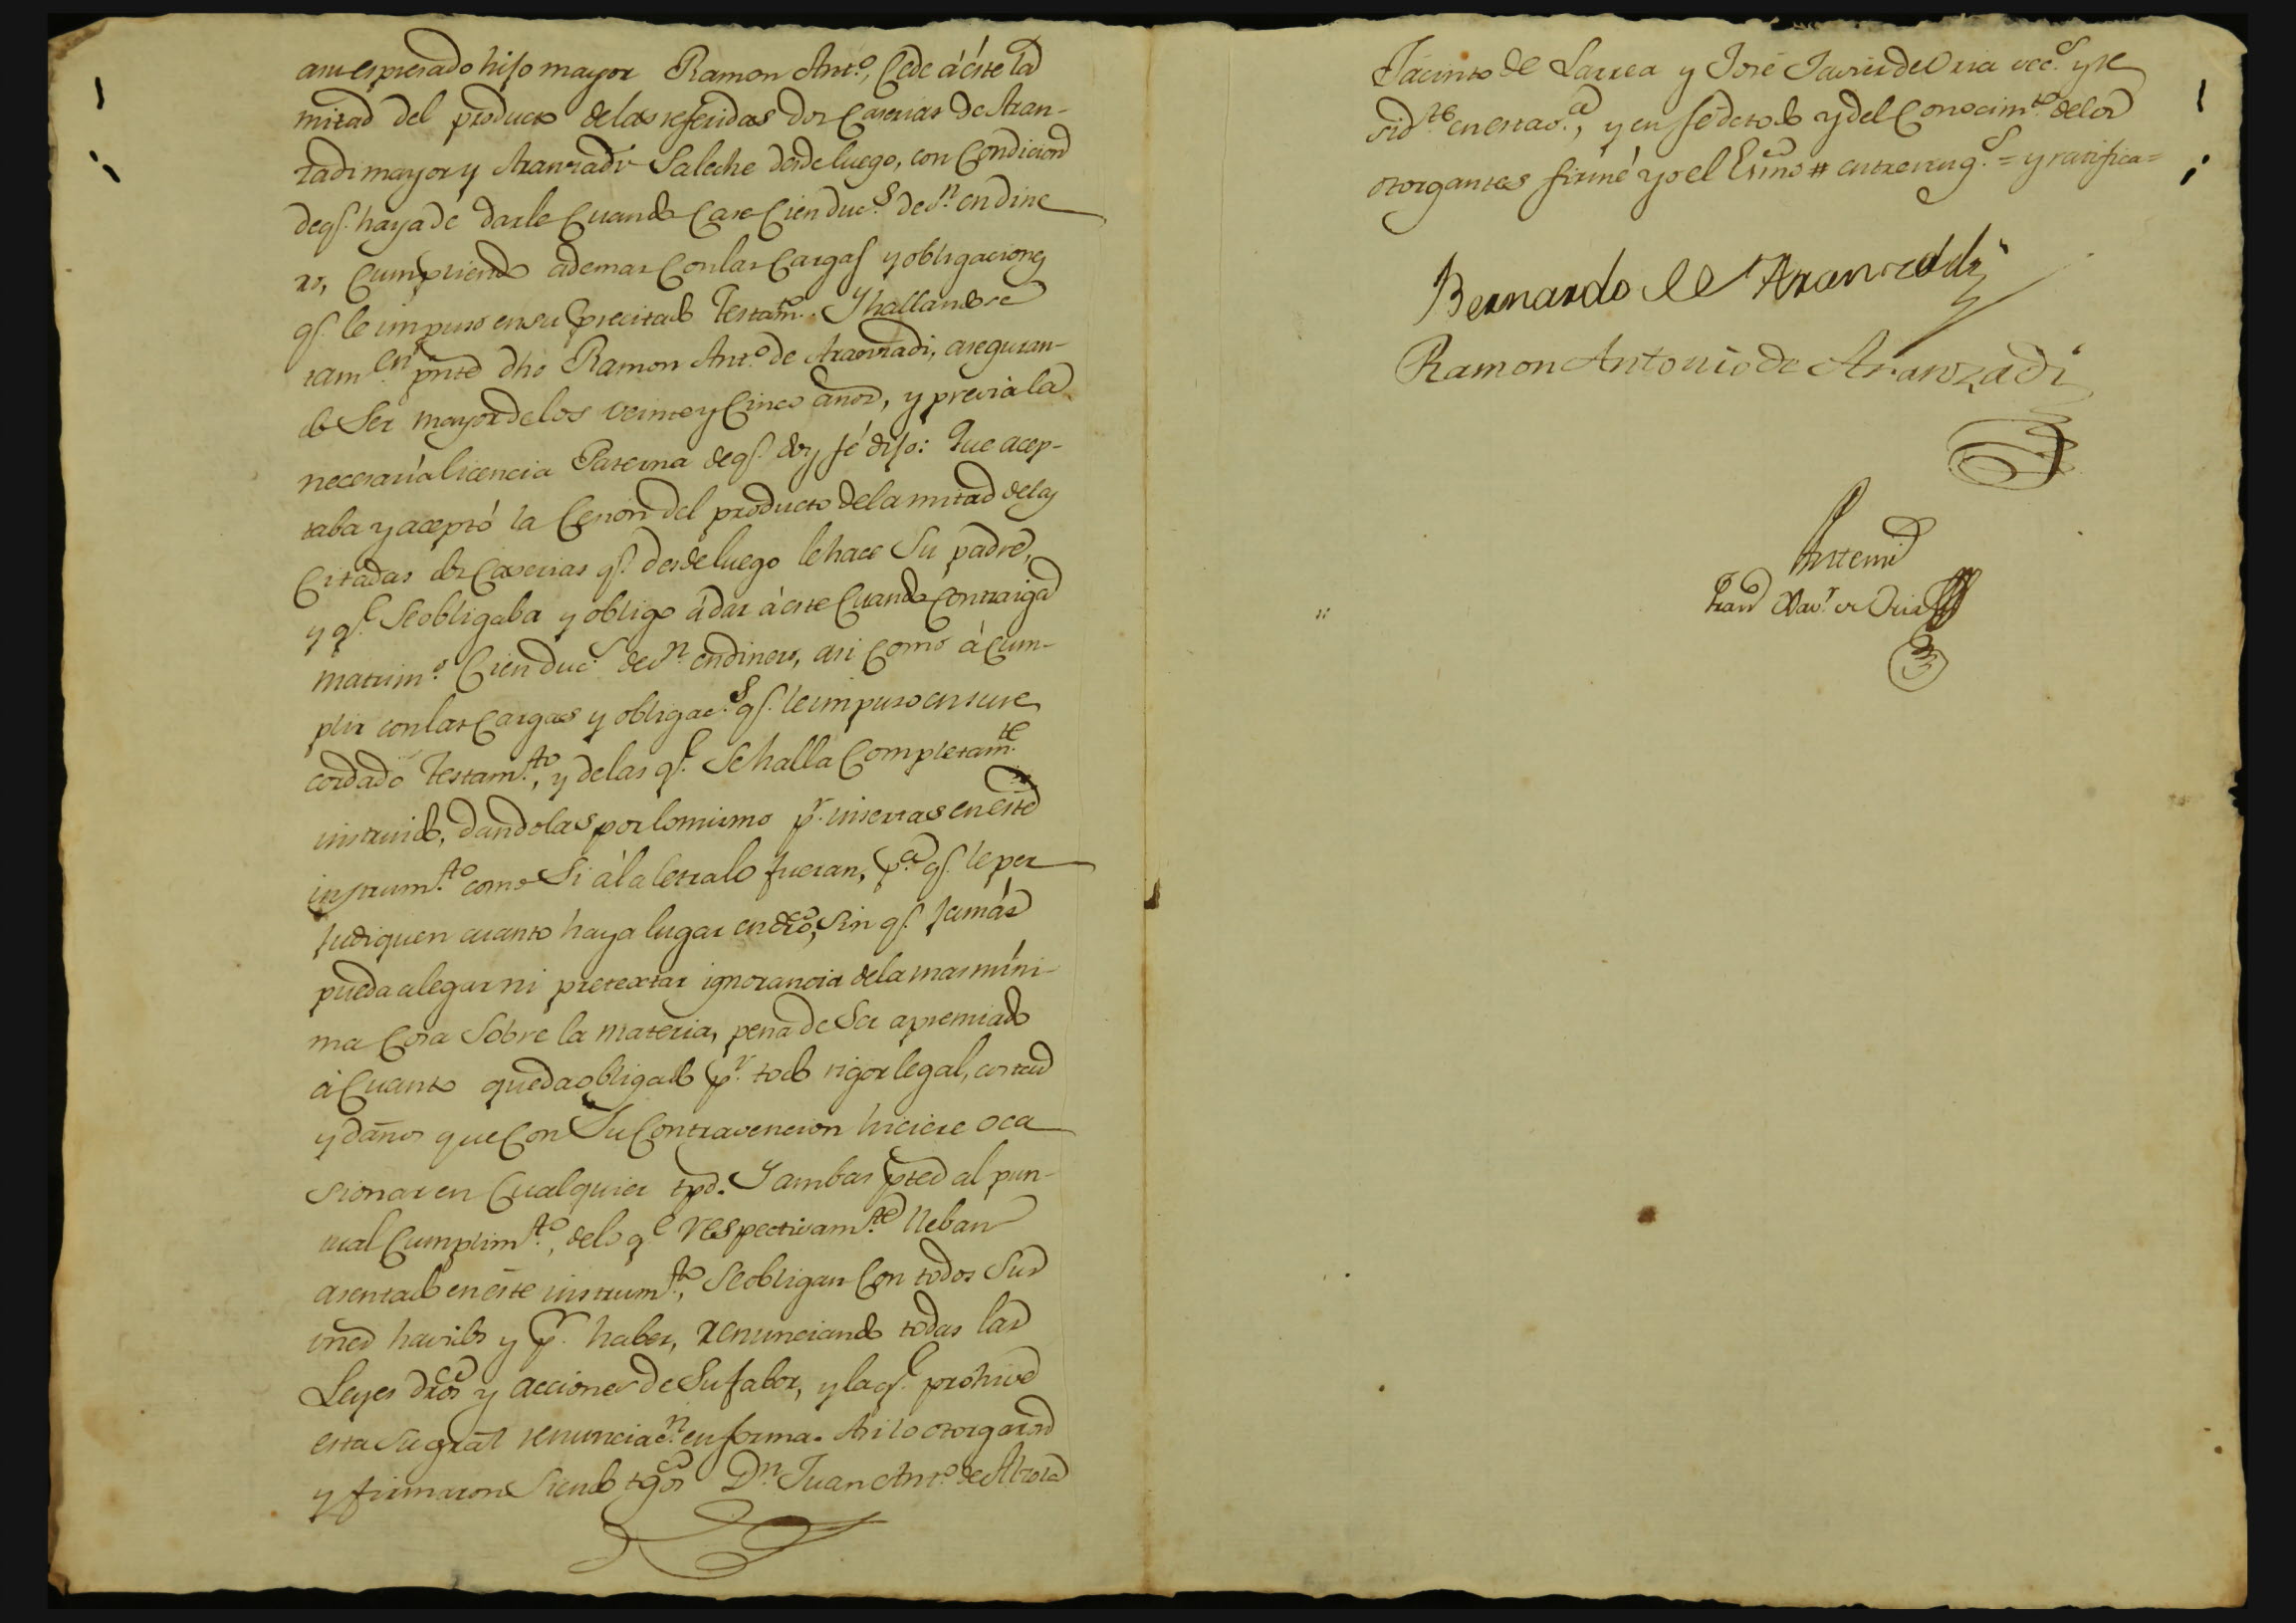 a su espresado hijo mayor Ramon Ant.º, Cede á éste la
mitad del producto de las referidas dos Caserias de Aran-
zadi mayor y Aranzadi Saleche desde luego, con Condicion
de q.ᵉ haya de darle Cuando Case Cien duc.ˢ de v.ⁿ en dine
ro, Cumpliendo ademas Con las Cargas y obligaciones
q.ᵉ le impuso en su precitado Testam.ᵗᵒ. Y hallandose
tam.ᵉⁿ pnte dho Ramon Ant.º de Aranzadi, aseguran-
do Ser mayor de los veinte y Cinco años, y previa la
necesaria licencia Paterna de q.ᵉ doy fé dijo: Que acep-
taba y aceptó la Cesion del producto de la mitad de las
Citadas dos Caserias q.ᵉ desde luego le hace Su padre,
y q.ᵉ Se obligaba y obligo á dar á este Cuando Contraiga
matrim.º Cien duc.ˢ de v.ⁿ en dinero, asi Como á Cum-
plir con las Cargas y obligac.ˢ q.ᵉ le impuso en su re
cordado Testam.ᵗᵒ, y de las q.ᵉ Se halla Completam.ᵗᵉ
instruido, dandolas por lo mismo p.ʳ insertas en éste
instrum.ᵗᵒ como Si á la letra lo fueran, p.ᵃ q.ᵉ le per
judiquen cuanto haya lugar en dro, Sin q.ᵉ jamás
pueda alegar ni pretextar ignorancia de la mas míni-
ma Cosa Sobre la materia, pena de Ser apremiado
á Cuanto queda obligado p.ʳ todo rigor legal, costas
y daños que Con Su Contravencion hiciere oca
sionar en Cualquier tpo. Y ambas ptes al pun-
tual Cumplim.ᵗᵒ, de lo q.ᵉ respectivam.ᵗᵉ lleban
asentado en éste instrum.ᵗᵒ, Se obligan Con todos Sus
vnes havidos y p.ʳ haber, renunciando todas las
Leyes dros y acciones de Su fabor, y la q.ᵉ prohive
esta Su gral renunciac.ⁿ en forma. Asi lo otorgaron
y firmaron Siendo tgos D.ⁿ Juan Ant.º de Alzola
Jacinto de Larrea y José Javier de Oria vec.ˢ y re
sid.ᵗᵉˢ en esta v.ᵃ, y en fé de todo y del Conocim.ᵗᵒ de los
otorgantes firmé yo el Esno # entrereng.ˢ = y ratifica =
Bernardo de Aranzadi
Ramon Antonio de Aranzadi
Antemi
Fran.ᶜᵒ Xav.ʳ de Oria